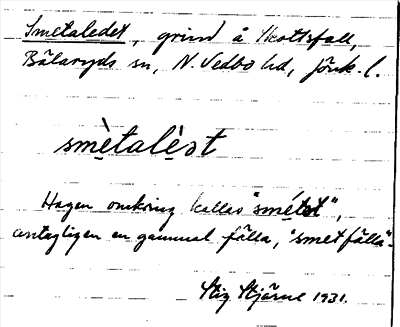 Smetaledet, grind å Skottsfall,
Bälaryds sn, N. Vedbo hd, Jönk. l.
smètalèət
Hagen omkring kallas "smétət",
antagligen en gammal fålla, "smetfålla".
Stig Stjärne 1931.